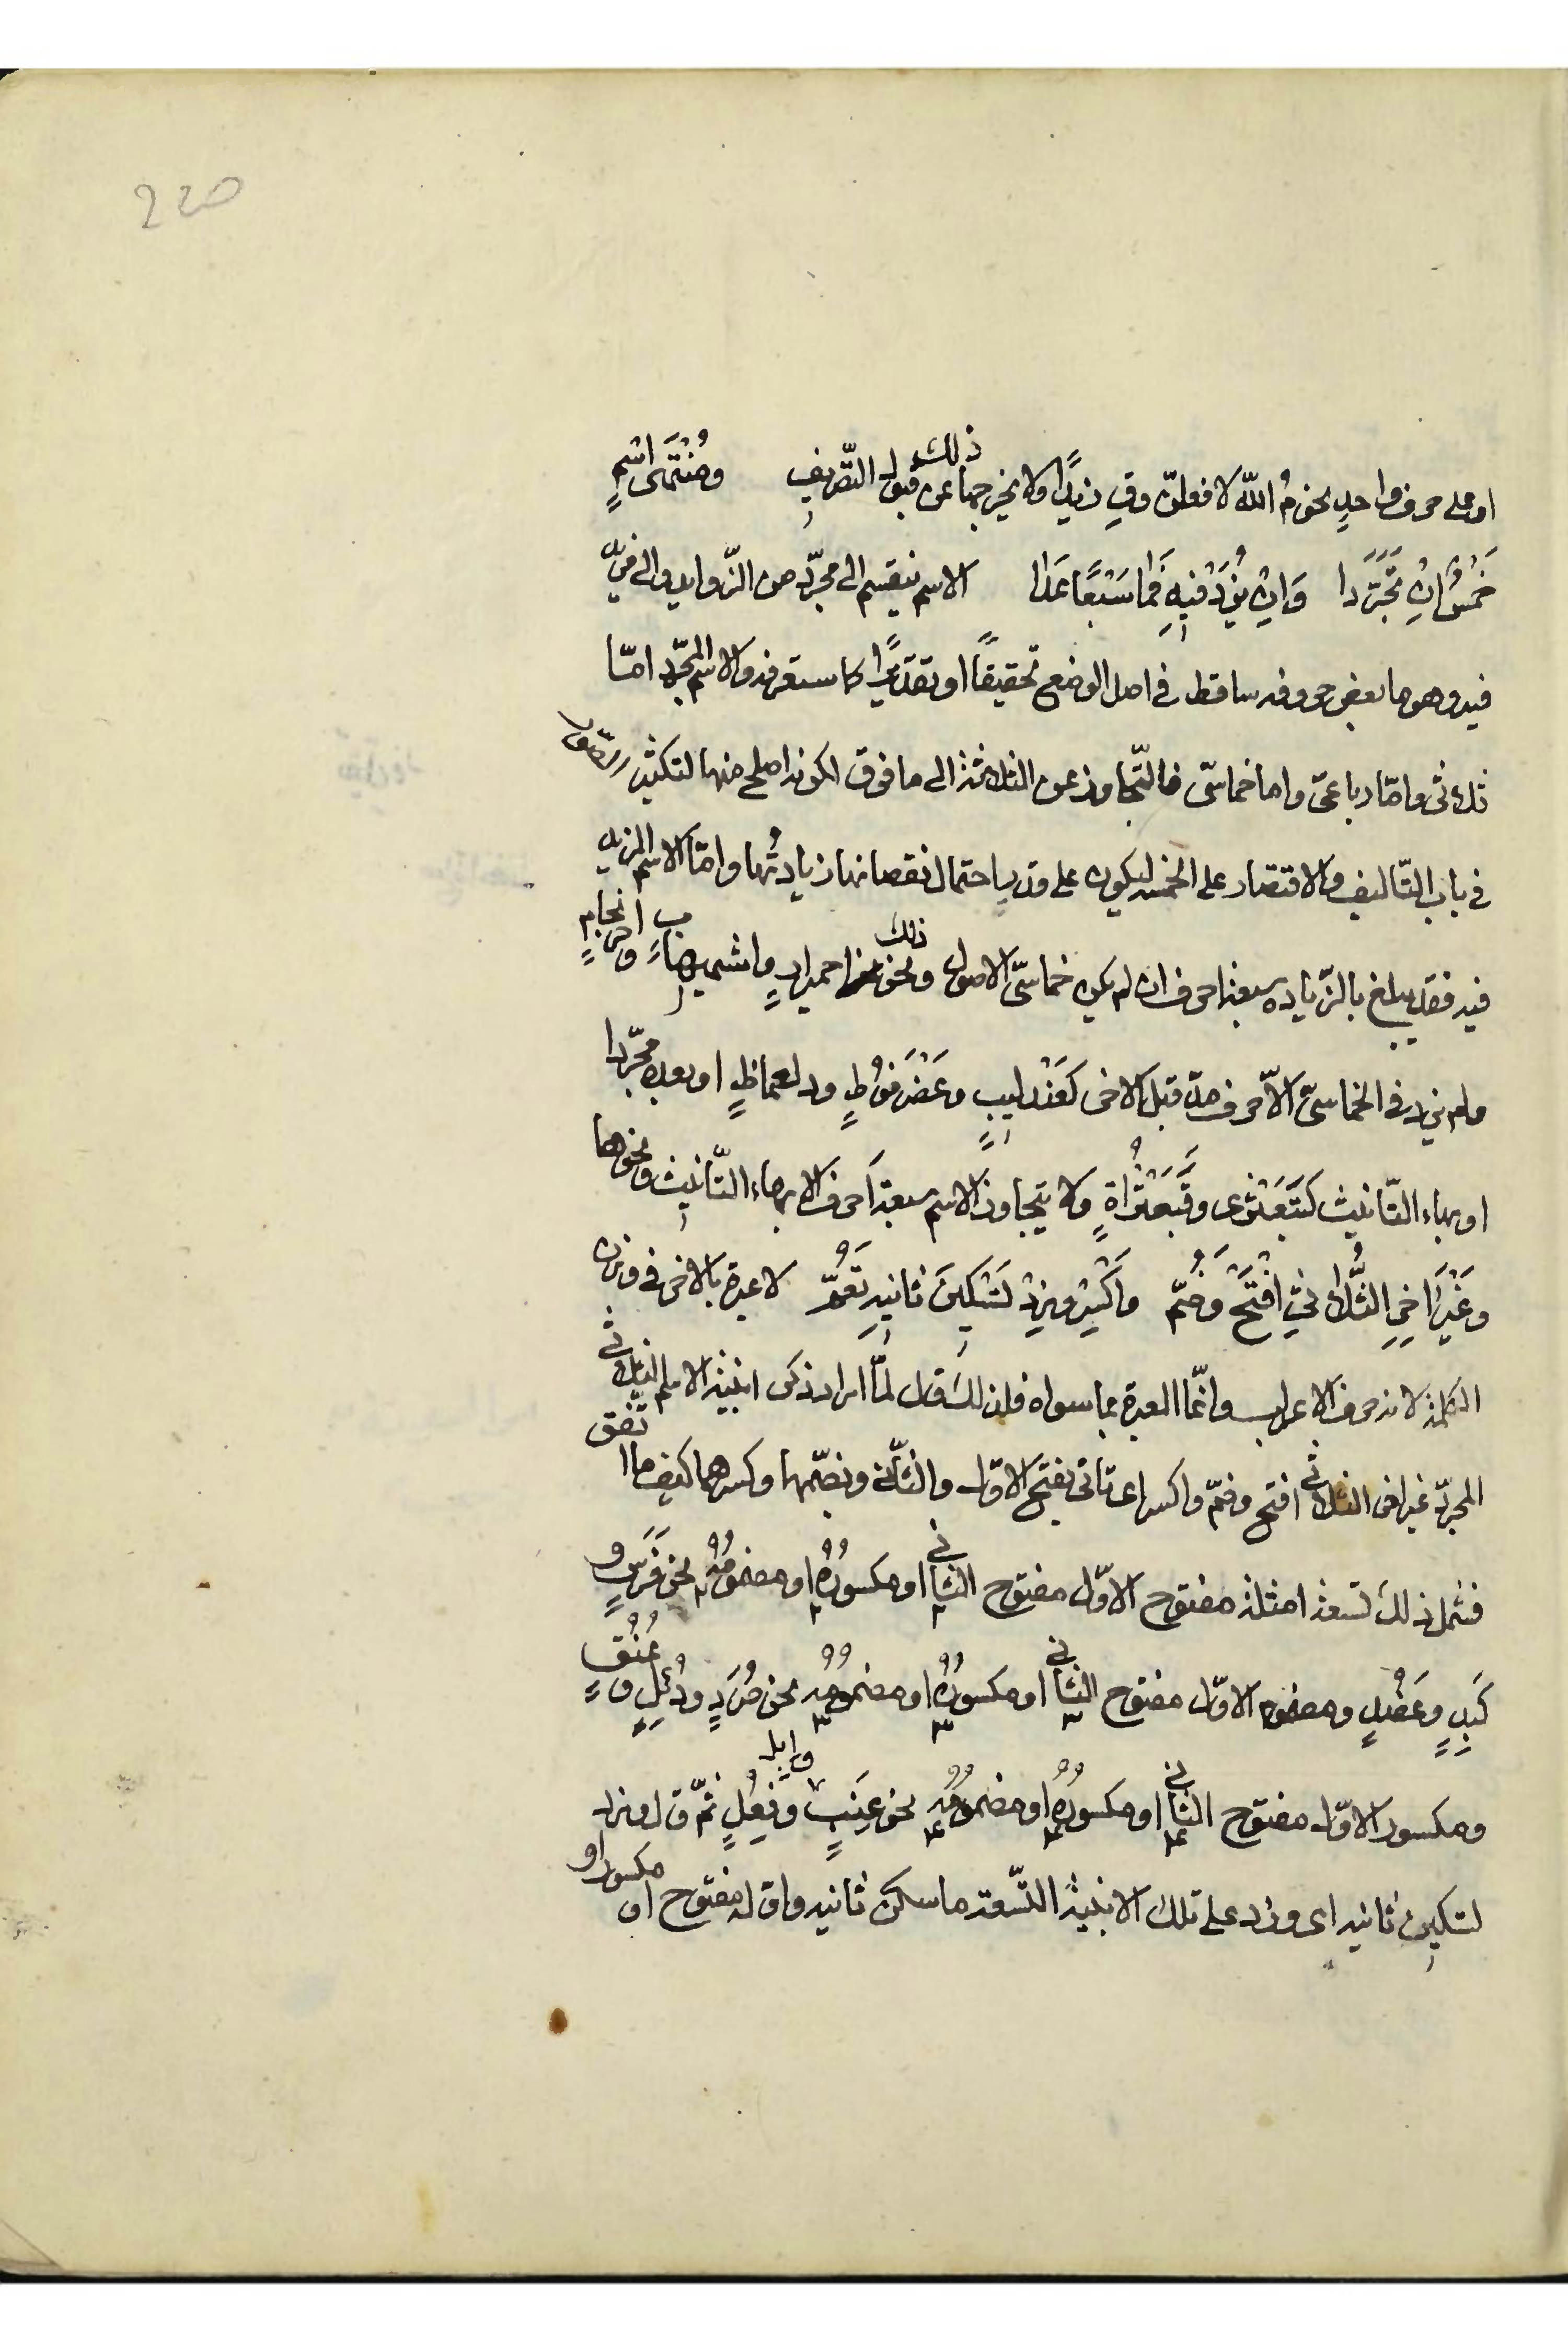 220
او على حرف واحدٍ نحو مُ اللّه لافعلنّ وقِ زيدًا ولا يخرجهما عن ذلك قبول التّصريفِ ومُنْتَهَى اسْمٍ
خَمْسٌ انِ تَجَرَّدا وَانِ يُزَدْ فيهِ فَما سَبْعًا عَدا الاسم ينقسم الى مجرّد من الزّوايد والى مزيد
فيه وهو ما بعض حروفه ساقط فى اصل الوضع تحقيقًا او تقديرًا كما ستعرفه والاسم المجرّد امّا
ثلاثى وامّا رباعىّ واما خماسّى فالتّجاوز عن الثلاثة الى ما فوق لكونه اصلح منها لتكثير الصّور
فى باب التّاليف والاقتصار على الخمسة ليكون على قدر احتمال نقصانها زيادتُها وامّا الاسم المزيد
فيه فقد يبلغ بالزّياده سبعة احرف ان لم يكن خماسّى الاصول وذلك نحو احميرارٍ واشهيبابٍ واحرنجامٍ
ولم يزد فى الخماسىّ الّا حرف مدّ قبل الاخر كعَنْدليبٍ وعَضْرَفوُطٍ ودلعماظٍ او بعده مجرّدا
او بهاء التّانيث كقَبَعْثرى وقَبَعْثَراةٍ ولا يتجاوز الاسم سبعة احرف الا بهاء التّانيث ونحوها
وغَيْرَ اخِرِ الثُّلاثىِ افْتَحْ وَضُمّ واكْسِرْ وزِدْ تَسْكينَ ثانيهِ تَعُمّ لا عبرة بالاخر فى وزن
الكلمة لانه حرف الاعراب وانّما العبرة بما سواه فلذلك قال لمّا اراد ذكر ابنية الاسم الثلاثى
المجرّد غير اخر الثلاثى افتح وضمّ واكسر اى تاتى بفتح الاوّل والثانى وبضمّهما وكسرهما كيف ما اتّفق
فشمل ذلك تسعة امثلة مفتوح الاوّل مفتوح الثانى او مكسورُهُ او مضمومُهُ نحو فَرَسٍ و
كَبِدٍ وعَضُدٍ ومضموم الاوّل مفتوح الثانى او مكسورُهُ او مضمومُهُ نحو صُرَدٍ ودُئِلٍ وعُنُقٍ
ومكسور الاوّل مفتوح الثانى او مكسورُهُ او مضمومُهُ نحو عِنَبٍ وابل وفِعُلٍ ثمّ قال وزد
تسكين ثانيه اى وزد على تلك الابنية التّسعة ما سكن ثانيه واوّله مفتوح او مكسور او